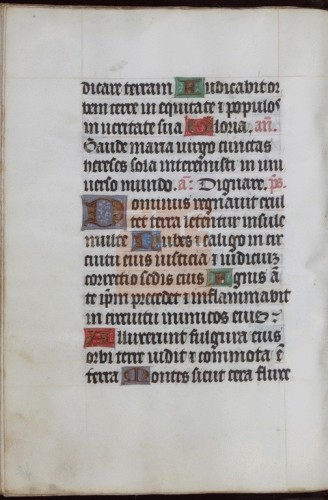 dicare terram Iudicabit or
bem terre in equitate ⁊ populos
in ueritate sua Gloria. an̄.
Gaude maria uirgo cunctas
hereses sola interemisti in uni
uerso mundo. a: Dignare. ps̄
Dominus regnauit exul
tet terra letentur insule
multe Nubes ⁊ caligo in cir
cuitu eius iusticia ⁊ iudiciuz
correctio sedis eius Ignis ā
te ip̄m precedet ⁊ inflammabit
in circuitu inimicos eius:
Alluxerunt fulgura eius
orbi terre uidit ⁊ commota ē
terra Montes sicut cera fluxe